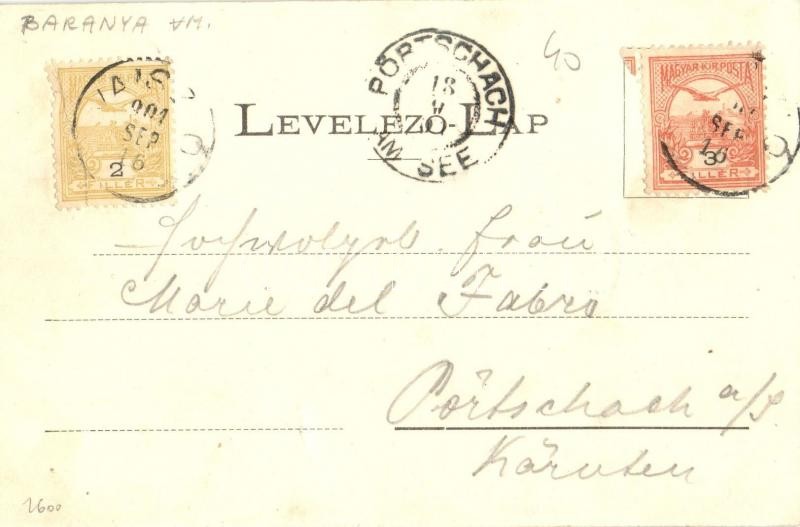 BARANYA VM.
40
JAISP
904
SEP
16
2
FILLÉR
PÖRTSCHACH
AM SEE
18
LEVELEZŐ-LAP
MAGYAR KIR. POSTA
SEP
16
3
FILLÉR
Hochwolgeb. Frau
Marie del Fabro
Pörtschach a/S.
Kärnten
2600